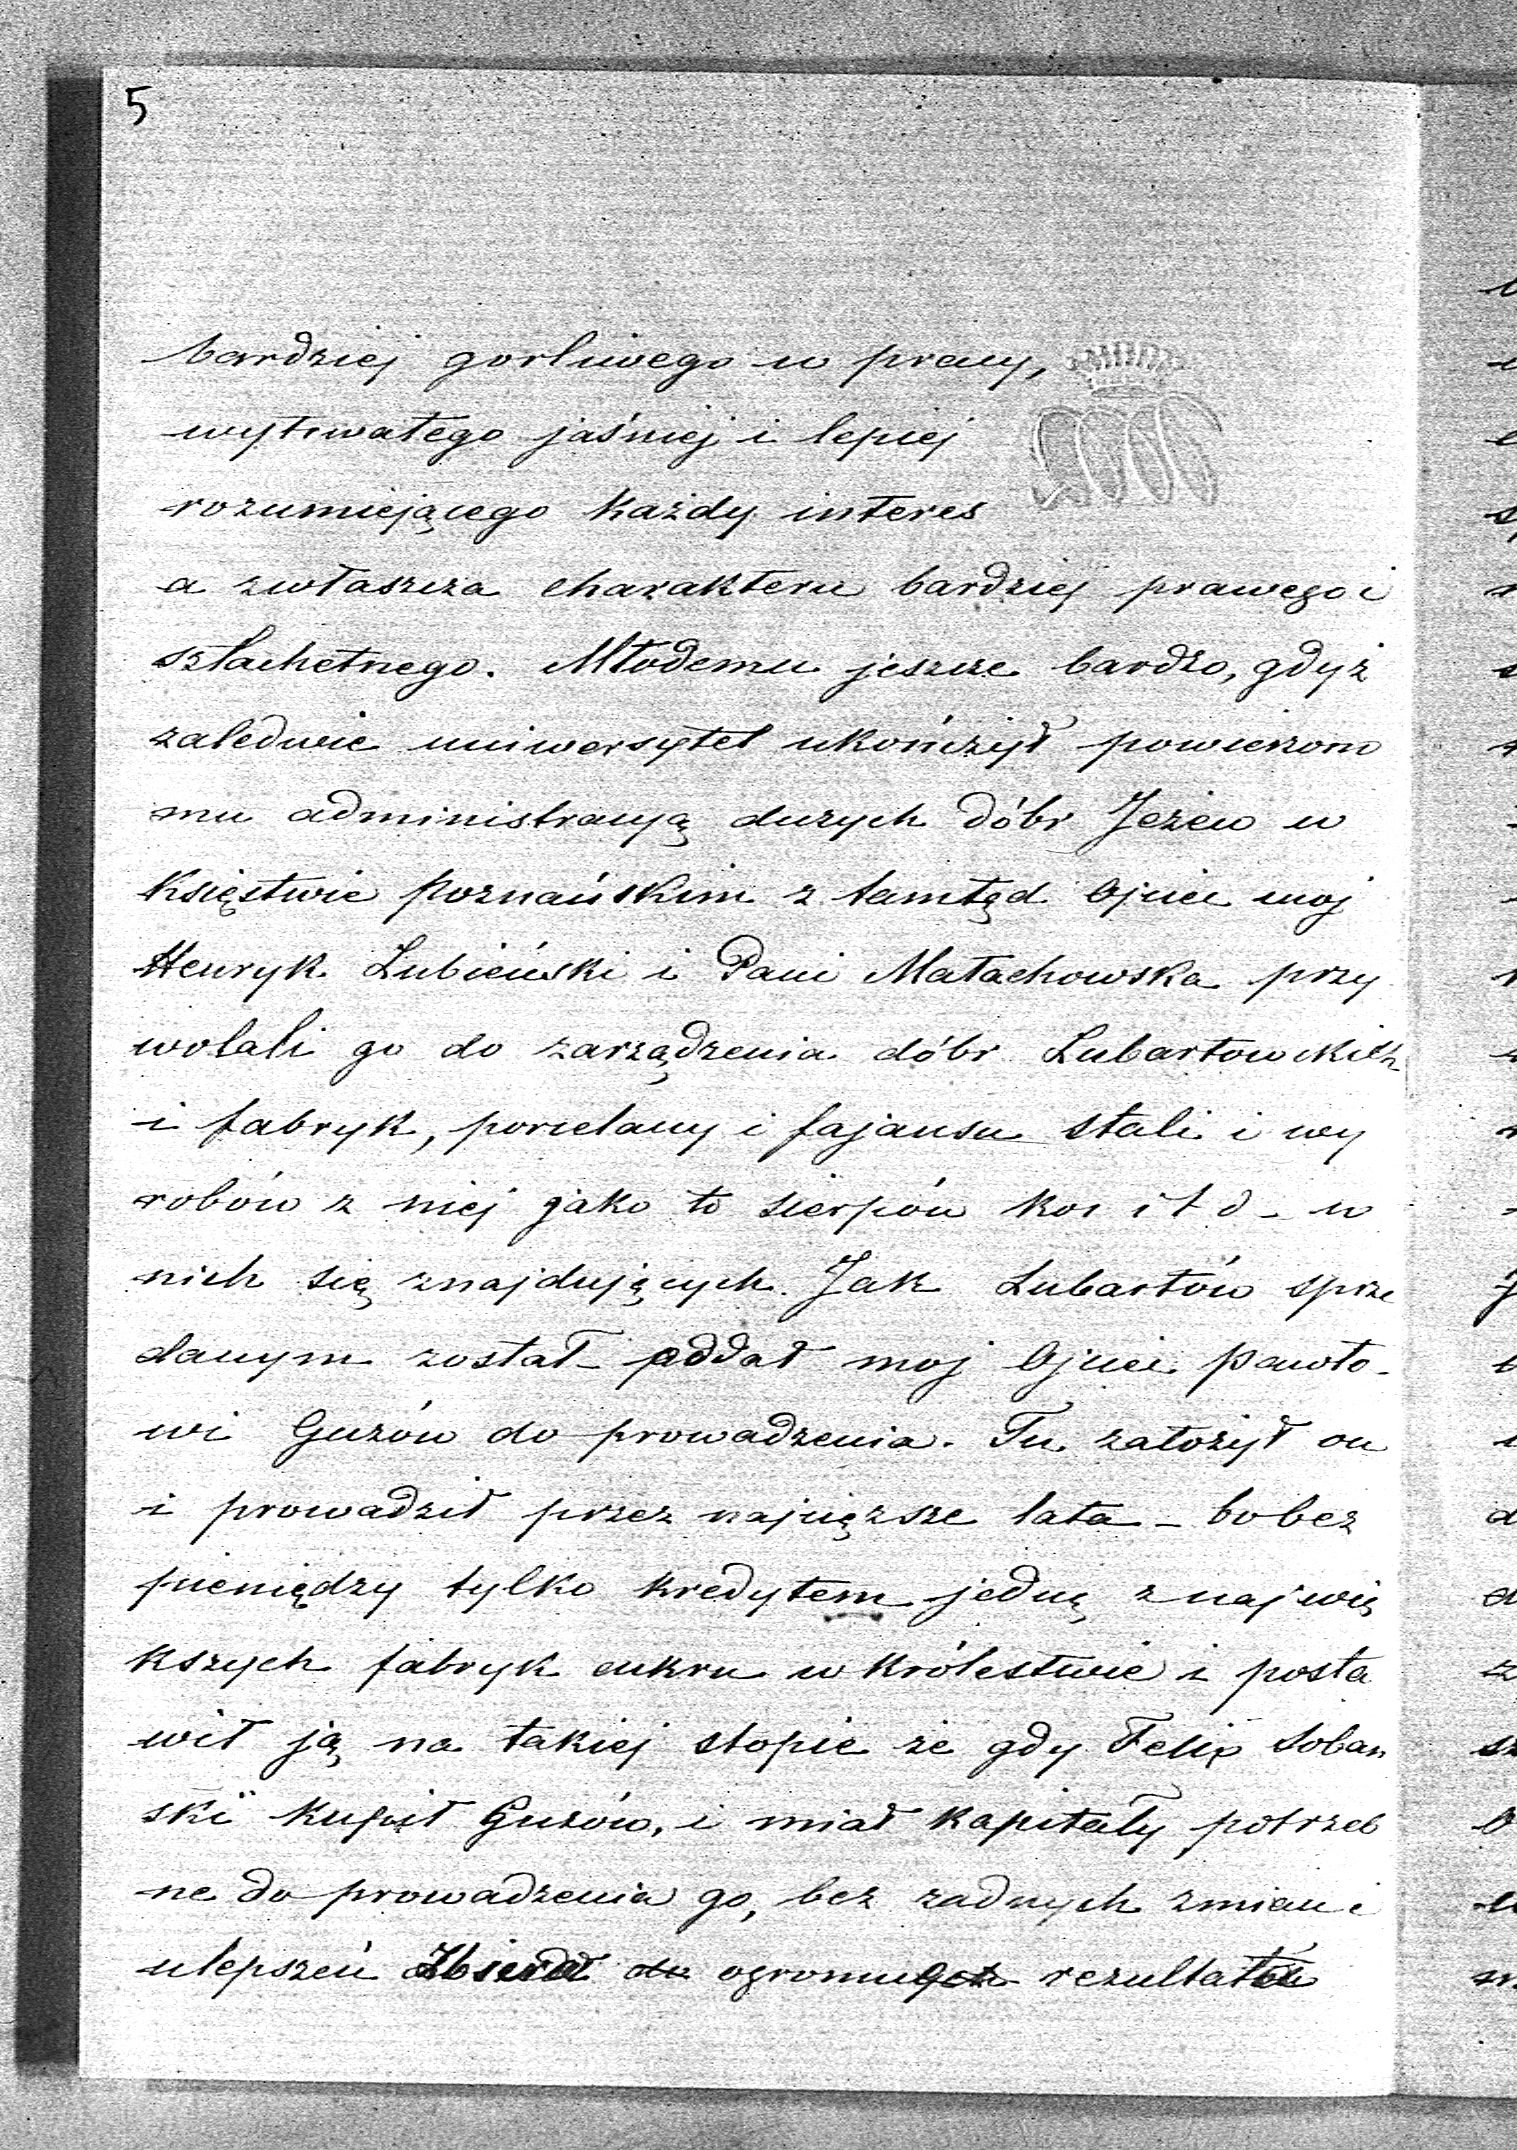 5
bardziej gorliwego w pracy,
wytrwałego jaśniej i lepiej
rozumiejącego każdy interes
a zwłaszcza charakteru bardziej prawego i
szlachetnego. Młodemu jeszcze bardzo, gdyż
zaledwie uniwersytet ukończył powierzono
mu administracyą dużych dóbr Jeżew w
Księstwie Poznańskim z tamtąd Ojciec moj
Henryk Lubieński i Pani Małachowska przy
wołali go do zarządzenia dóbr Lubartowskich
i fabryk, porcelany i fajansu stali i wy
robów z niej jako to sierpów kos i t d - w
nich się znajdujących. Jak Lubartów sprze
danym został - oddał moj Ojciec Pawło-
wi Guzów do prowadzenia. Tu założył on
i prowadził przez najcięższe lata - bo bez
pieniędzy tylko kredytem jedną z najwię
kszych fabryk cukru w Królestwie i posta
wił ją na takiej stopie że gdy Felix Soban
ski kupił Guzów, i miał kapitały potrzeb
ne do prowadzenia go, bez zadnych zmian i
ulepszeń ogromnych rezultatów